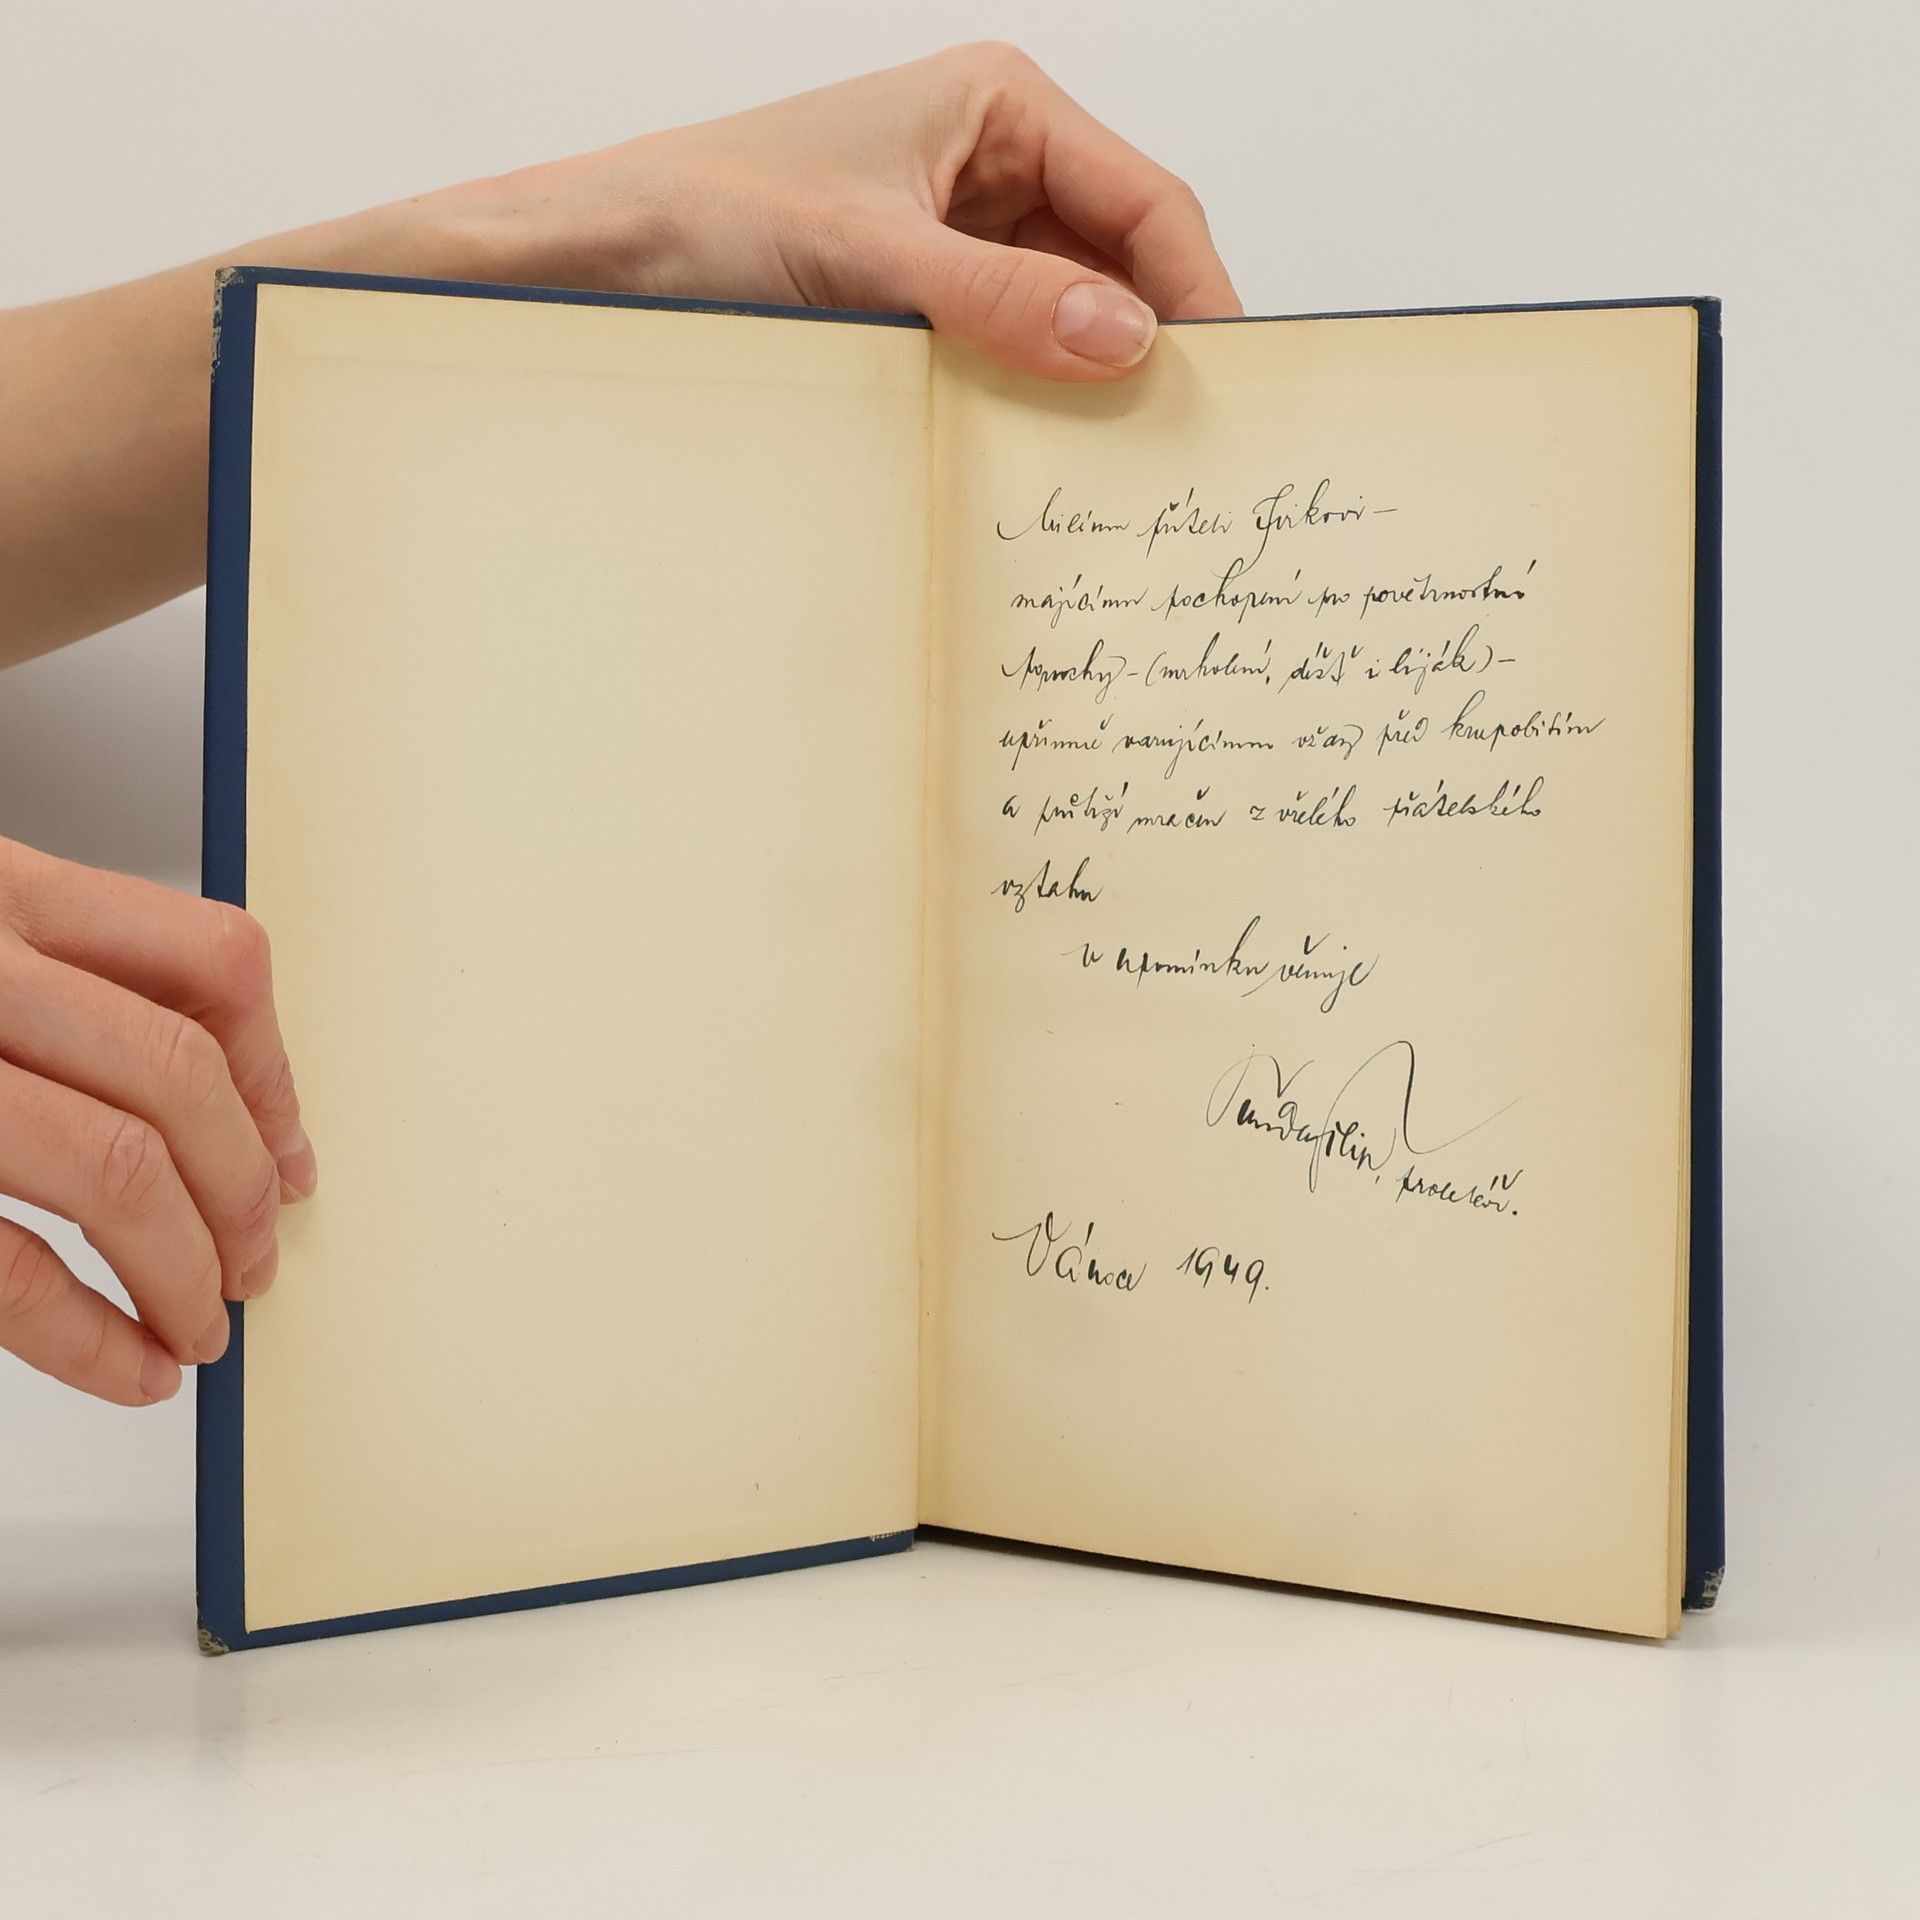 Milému příteli Jirkovi –
majícímu pochopení pro povětrnostní
poruchy – (mrholení, déšť i liják) –
upřímně varujícímu vždy před krupobitím
a průtrží mračen z vřelého přátelského
vztahu
v upomínku věnuje
proletář.
Vánoce 1949.